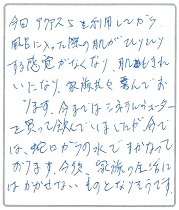 今回アクアス5を利用してから
風呂に入った際の肌がひりひり
する感覚がなくなり、肌もきれ
いになり、家族共々喜んでお
ります。今まではミネラルウォーター
を買って飲んでいましたが今で
は、蛇口からの水ですませて
おります。今後、家族の生活に
はかかせないものとなりそうです。